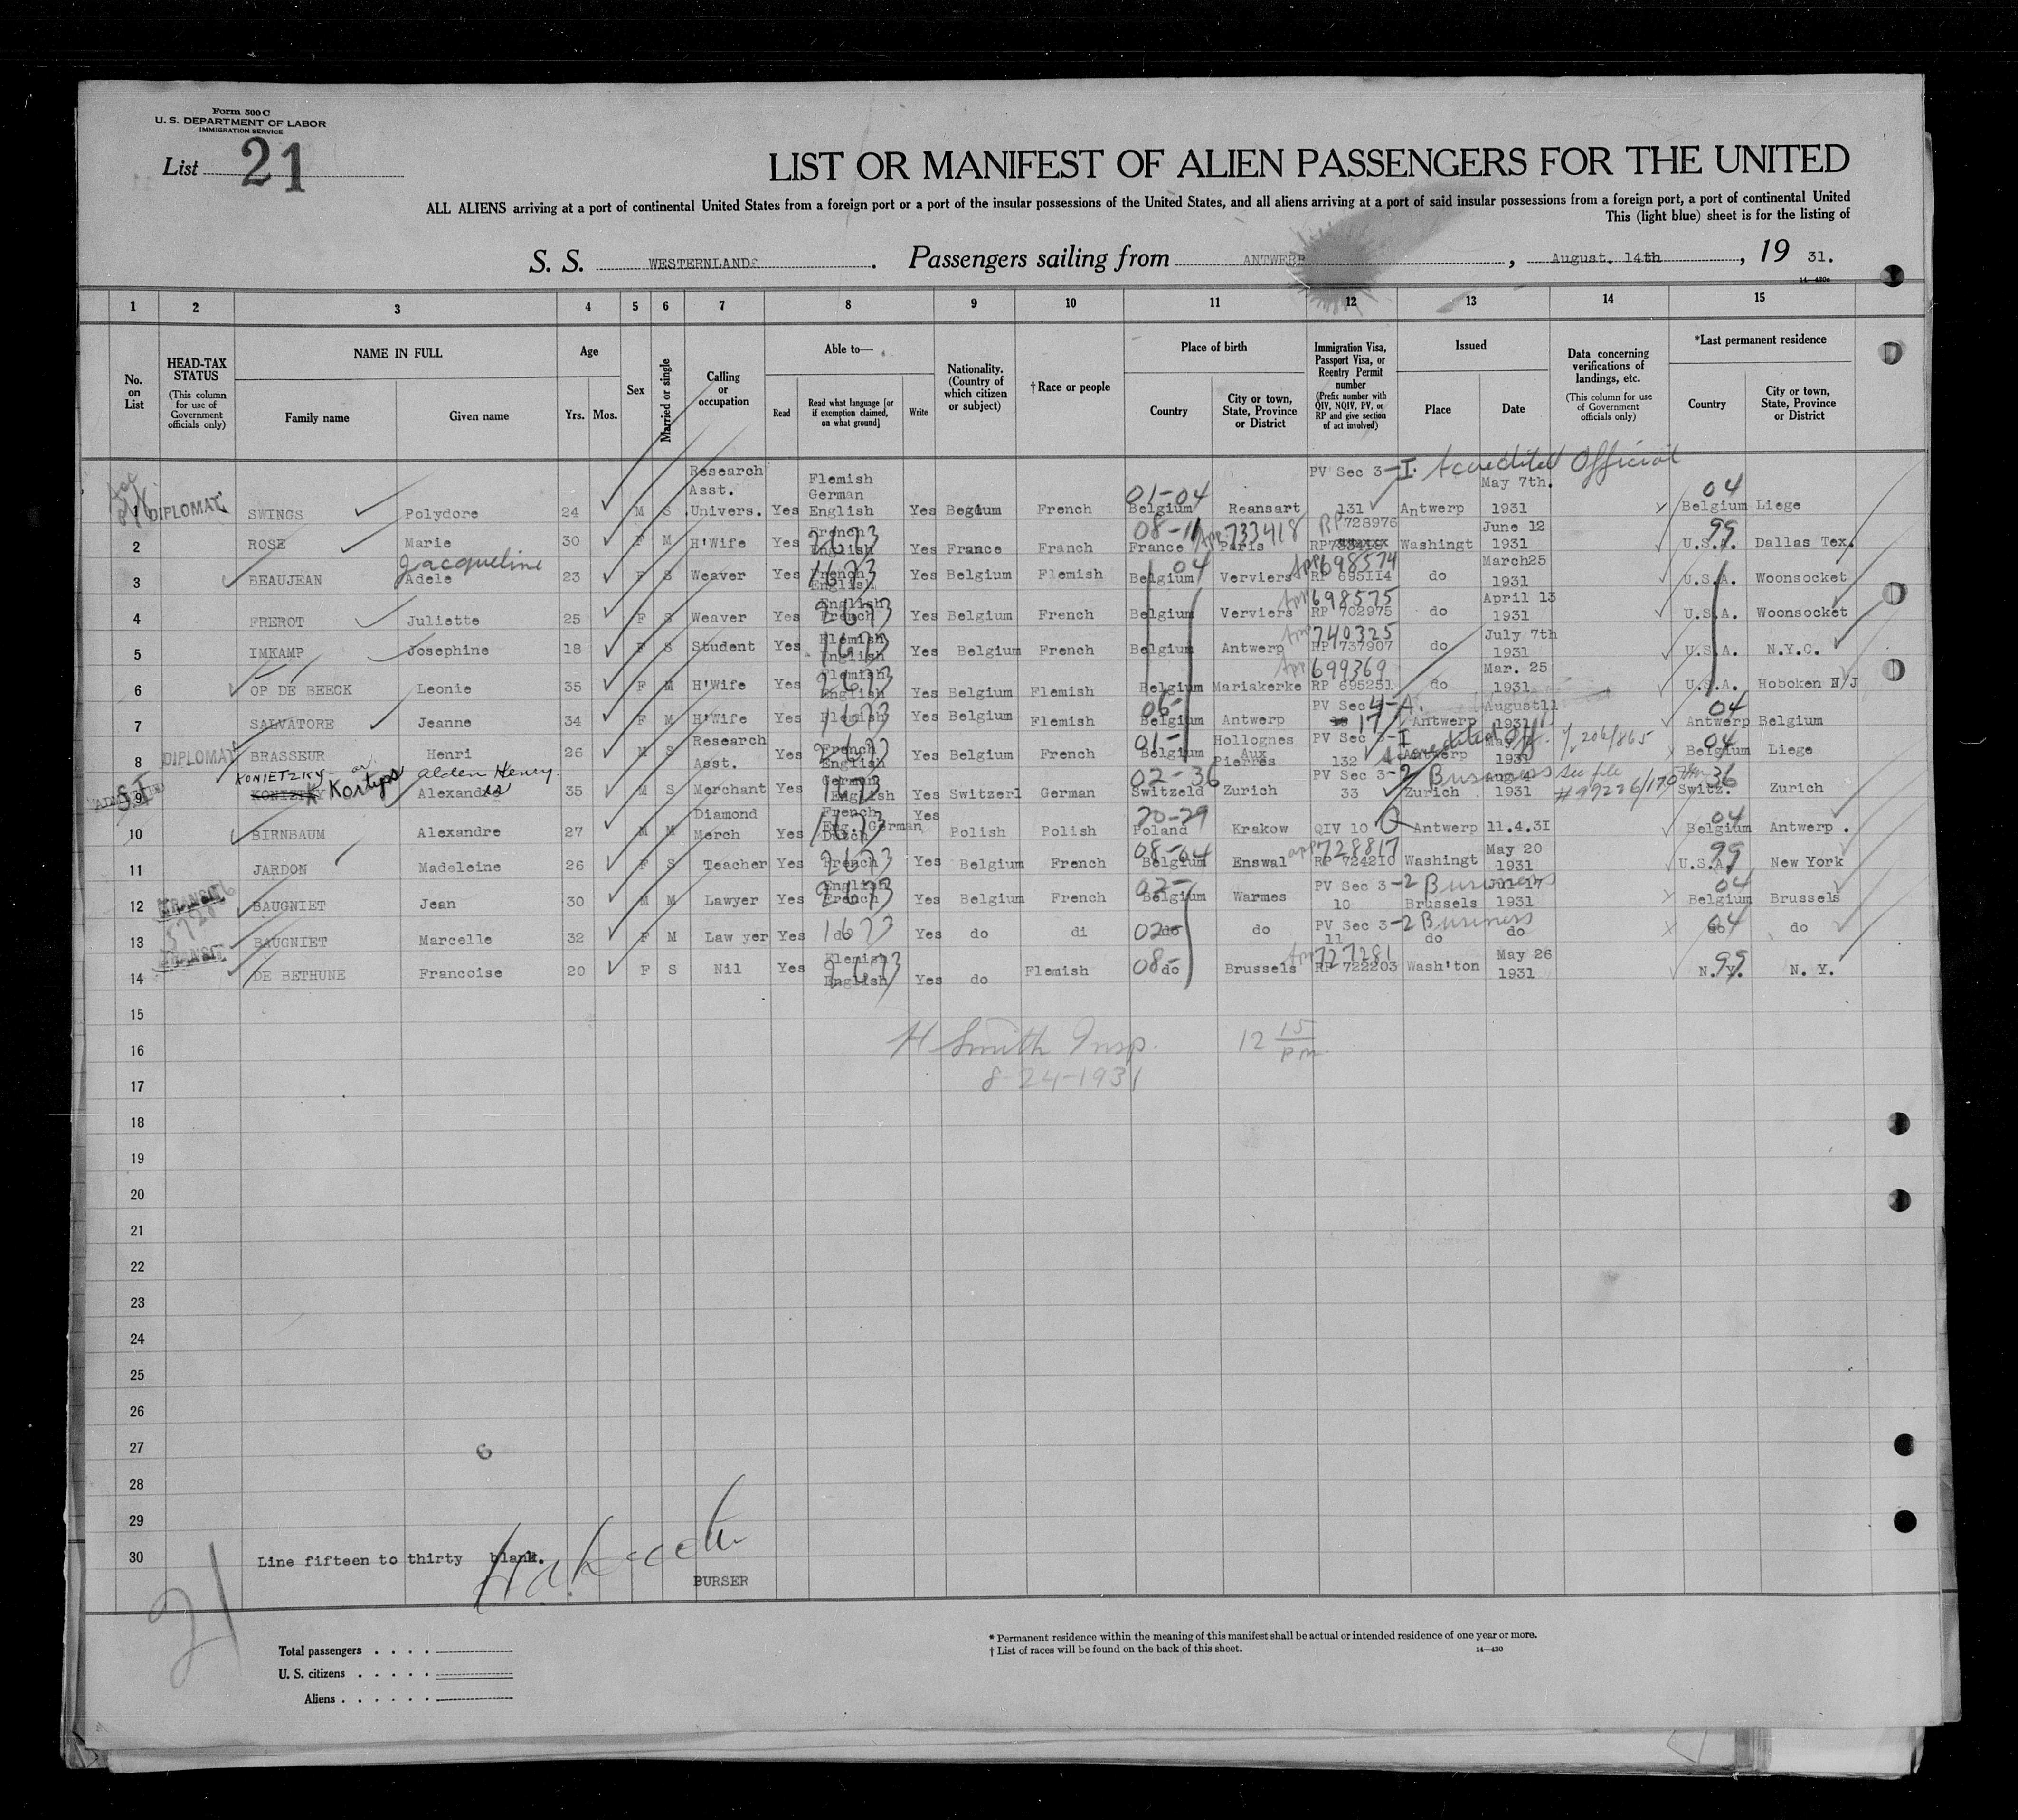 Form 500 C
U. S. DEPARTMENT OF LABOR
IMMIGRATION SERVICE
List 21
LIST OR MANIFEST OF ALIEN PASSENGERS FOR THE UNITED
ALL ALIENS arriving at a port of continental United States from a foreign port or a port of the insular possessions of the United States, and all aliens arriving at a port of said insular possessions from a foreign port, a port of continental United
This (light blue) sheet is for the listing of
S. S. WESTERNLAND. Passengers sailing from ANTWERP, August. 14th, 19 31.
14—430a
1 2 3 4 5 6 7 8 9 10 11 12 13 14 15
No. on List
HEAD-TAX STATUS (This column for use of Government officials only)
NAME IN FULL Family name Given name
Age Yrs. Mos.
Sex
Married or single
Calling or occupation
Able to— Read Read what language [or if exemption claimed, on what ground] Write
Nationality. (Country of which citizen or subject)
† Race or people
Place of birth Country City or town, State, Province or District
Immigration Visa, Passport Visa, or Reentry Permit number (Prefix number with QIV, NQIV, PV, or RP and give section of act involved)
Issued Place Date
Data concerning verifications of landings, etc. (This column for use of Government officials only)
*Last permanent residence Country City or town, State, Province or District
1 DIPLOMAT SWINGS Polydore 24 M S Research Asst. Univers. Yes Flemish German English Yes Begium French 01-04 Belgium Reansart PV Sec 3-I. Acredited Official 131 Antwerp May 7th. 1931 04 Belgium Liege
2 ROSE Marie 30 F M H'Wife Yes French English Yes France Franch 08-11 France Paris App 733418 RP 728976 RP Washingt June 12 1931 99 U.S.A. Dallas Tex.
3 BEAUJEAN Jacqueline Adele 23 F S Weaver Yes French English 1673 Yes Belgium Flemish 04 Belgium Verviers App 698574 RP 695114 do March25 1931 U.S.A. Woonsocket
4 FREROT Juliette 25 F S Weaver Yes English French 2673 Yes Belgium French Belgium Verviers App 698575 RP 702975 do April 13 1931 U.S.A. Woonsocket
5 IMKAMP Josephine 18 F S Student Yes Flemish English 1673 Yes Belgium French Belgium Antwerp App 740325 RP 737907 do July 7th 1931 U.S.A. N.Y.C.
6 OP DE BEECK Leonie 35 F M H'Wife Yes Flemish English 2673 Yes Belgium Flemish Belgium Mariakerke App 699369 RP 695251 do Mar. 25 1931 U.S.A. Hoboken N/J
7 SALVATORE Jeanne 34 F M H'Wife Yes Flemish 1673 Yes Belgium Flemish 06- Belgium Antwerp PV Sec 4-A. 17 Antwerp August11 1931 04 Antwerp Belgium
8 DIPLOMAT BRASSEUR Henri 26 M S Research Asst. Yes French English 2673 Yes Belgium French 01- Belgium Hollognes Aux Pierres PV Sec 3-I Acredited Off. 132 Antwerp May 1931 04 Belgium Liege
9 KONIETZKY or K Kortys Alden Henry Alexandre is 35 M S Merchant Yes German English Yes Switzerl German 02-36 Switzeld Zurich PV Sec 3-2 Business 33 Zurich Aug. 4 1931 see file # 99226/170 36 Switz. Zurich
10 BIRNBAUM Alexandre 27 M M Diamond Merch Yes French Eng. German Dutch 1673 Yes Polish Polish 20-29 Poland Krakow QIV 10 Q Antwerp 11.4.31 04 Belgium Antwerp.
11 JARDON Madeleine 26 F S Teacher Yes French 2673 Yes Belgium French 08-04 Belgium Enswal app 728817 RP 724210 Washingt May 20 1931 99 U.S.A. New York
12 TRANSIT BAUGNIET Jean 30 M M Lawyer Yes English French 2673 Yes Belgium French 02- Belgium Warmes PV Sec 3-2 Business 10 Brussels 1931 04 Belgium Brussels
13 TRANSIT BAUGNIET Marcelle 32 F M Law yer Yes do 1673 Yes do di 02 do do PV Sec 3-2 Business 11 do do 04 do do
14 DE BETHUNE Francoise 20 F S Nil Yes Flemish English 2673 Yes do Flemish 08- do Brussels App 727281 RP 722203 Wash'ton May 26 1931 99 N. Y. N. Y.
15
16 H Smith Insp. 12 15 pm
17 8-24-1931
18
19
20
21
22
23
24
25
26
27
28
29
30 Line fifteen to thirty blank.
BURSER
21
Total passengers
U. S. citizens
Aliens
* Permanent residence within the meaning of this manifest shall be actual or intended residence of one year or more.
† List of races will be found on the back of this sheet.
14—430